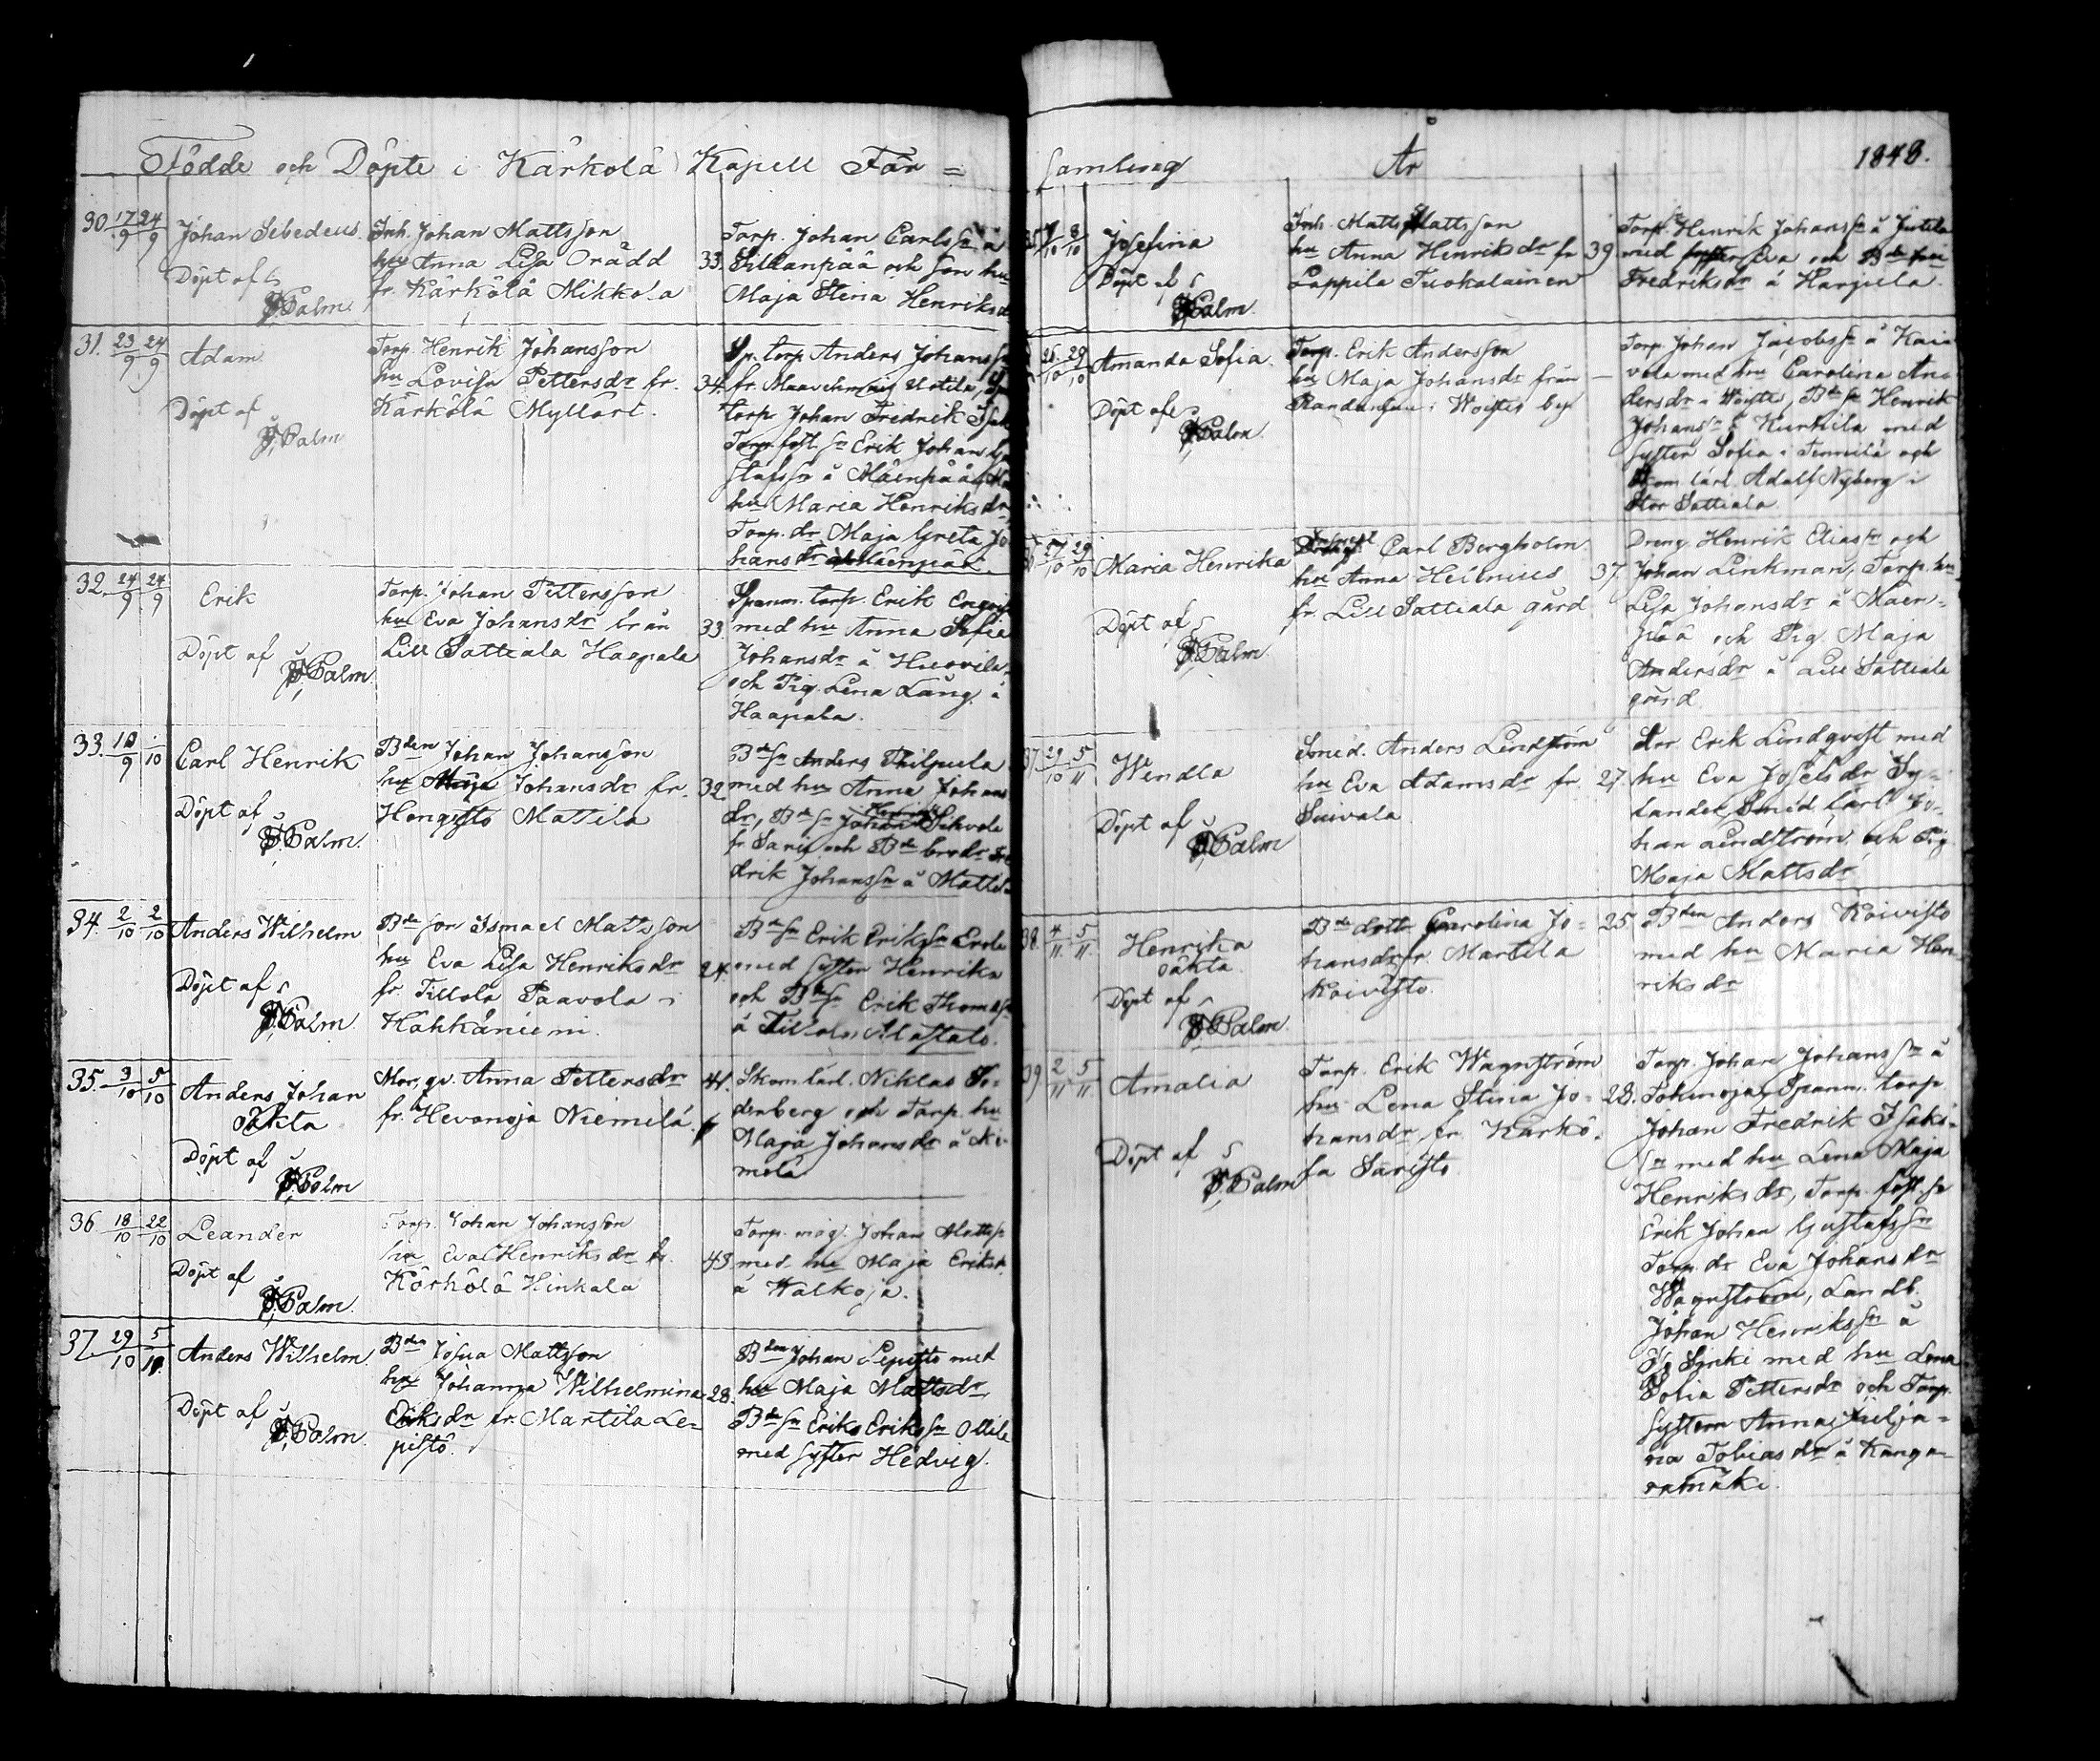 Födde och Döpte i Kärkölä Kapell För =
30. 17/9 24/9 Johan Sebedeus.
Döpt af
Palm.
Inh. Johan Mattsson
hu Anna Lisa Orädd
fr. Kärkölä Mikkola
33.
Torp. Johan Carlssn å
Sillanpää och son hu
Maja Stina Henriksd
31. 23/9 24/9 Adam
Döpt af
Palm
Torp. Henrik Johansson
hu Lovisa Pettersdr fr.
Kärkölä Mylläri.
34.
Sp. torp Anders Johanss
fr. Uotila,
torp Johan Fredrik Isak
Torp. fost. sn Erik Johan Gu
stafssn å Mäenpää
hu Maria Henriksdr,
Torp. dr Maja Greta Jo
hansdr Mäenpää.
32. 24/9 24/9 Erik
Döpt af
Palm
Torp. Johan Pettersson
hu Eva Johansdr från
Lill Sattiala Haapala
33.
Spanm. torp. Erik
med hu Anna Sofia
Johansdr å Huovila
och Pig. Lena Lång å
Haapala.
33. 10/9 /10 Carl Henrik
Döpt af
Palm.
Bden Johan Johansson
hu Maja Johansdr fr.
Hongisto Mattila
32.
Bdesn Anders Philpula
med hu Anna Johans
dr, Bdesn Johan Henrik Sihvola
fr Sarif och Bde brodr Fre
drik Johanssn å Mattil
34. 2/10 2/10 Anders Wilhelm
Döpt af
Palm.
Bde son Ismael Mattsson
hu Eva Lisa Henriksdr
fr. Tillola Paavola i
Hähkäniemi.
24.
Bdesn Erik Erikssn Erola
med syster Henrika
och Bdesn Erik Thomassn
å Tillola Alastalo.
35. 3/10 5/10 Anders Johan
oäkta
Döpt af
Palm
Mor, qv. Anna Pettersdr
fr. Hevonoja Niemelä.
41.
Skom. lärl. Niklas So-
derberg och Torp. hu
Maja Johansdr å Ni-
melä
36. 18/10 22/10 Leander
Döpt af
Palm.
Torp. Johan Johansson
hu Eva Henriksdr fr.
Kärkölä Hinkala
43.
Torp. mag. Johan Mattss
med hu Maja Eriksd
å Walkoja.
37. 29/10 5/11. Anders Wilhelm.
Döpt af
Palm.
Bden Josua Mattsson
hu Johanna Wilhelmina
Eriksdr fr. Martila Le-
pistö.
28.
Bden Johan Lepistö med
hu Maja Mattsdr,
Bdesn Eriks Erikssn Ottila
med syster Hedvig.
samling År 1848.
/10 8/10 Josefina
Döpt af
Palm.
Inh. Matts Mattsson
hu Anna Henriksdr fr
Lappila Tuokalainen
39
Torp. Henrik Johanssn å Jutila
med syster Eva och
Fredriksdr å Harpila.
25/10 29/10 Amanda Sofia.
Döpt af
Palm.
Torp. Erik Andersson
hu Maja Johansdr från
i Woistes by
—
Torp. Johan Jacobssn å Kai
vola med hu Carolina An-
dersdr i Woiste, Bdesn Henrik
Johanssn å Kurkila med
syster Sofia i Tennilä och
Skom. lärl. Adolf Nyberg i
Stor Sattiala.
27/10 29/10 Maria Henrika
Döpt af
Palm
Carl Bergholm
hu Anna Helenius
fr. Lill Sattiala gård
37.
Dreng. Henrik Eliassn och
Johan Linkman, Torp. hu
Lisa Johansdr å Mäen-
pää och Pig. Maja
Andersdr å Lill Sattiala
gård.
37 29/10 5/11 Wendla
Döpt af
Palm
Smed. Anders Lindström
hu Eva Adamsdr fr.
Suivala
27.
Erik Lindqvist med
hu Eva Josefsdr Sy-
lander, Smed lärl. Jo-
han Lindström och Pig
Maja Mattsdr
38. 4/11. 5/11. Henrika
oäkta.
Döpt af
Palm.
Bde dott. Carolina Jo-
hansdr fr. Martila
Koivisto.
25
Bden Anders Koivisto
med hu Maria Hen
riksdr
39 2/11 5/11. Amalia
Döpt af
Palm
Torp. Erik Wagnström
hu Lena Stina Jo-
hansdr, fr. Kärkö-
la Saristo
28.
Torp. Johan Johanssn å
Tokinoja, Spanm. torp
Johan Fredrik Isaks-
sn med hu Lena Maja
Henriksdr, Torp. fost. sn
Erik Johan Gustafssn
Torp. dr Eva Johansdr
Wagnström, Landb.
Johan Henrikssn å
med hu Lena
Sofia Pettersdr och Torp.
systern Anna Julja-
na Tobiasdr å Kanga-
samäki.